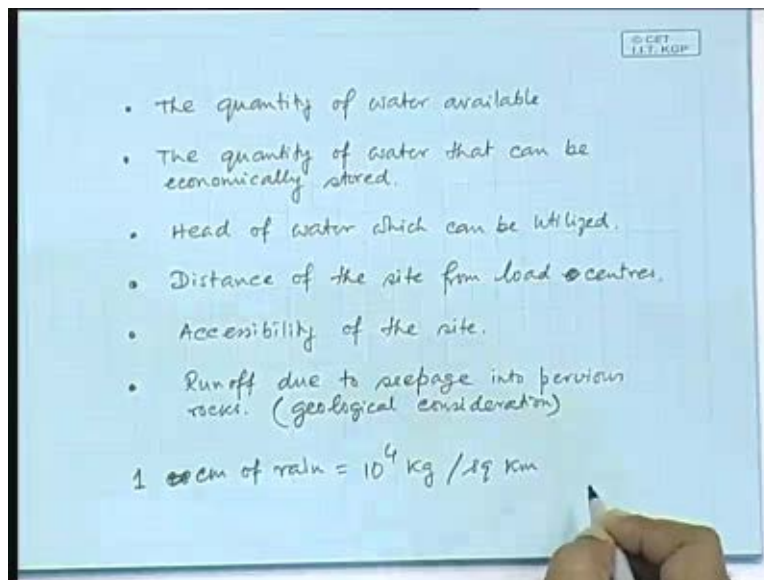 © CET
I.I.T. KGP
• The quantity of water available
• The quantity of water that can be
economically stored.
• Head of water which can be utilized.
• Distance of the site from load centres.
• Accessibility of the site.
• Runoff due to seepage into pervious
rocks. (geological consideration)
1 cm of rain = 10⁴ kg / sq km